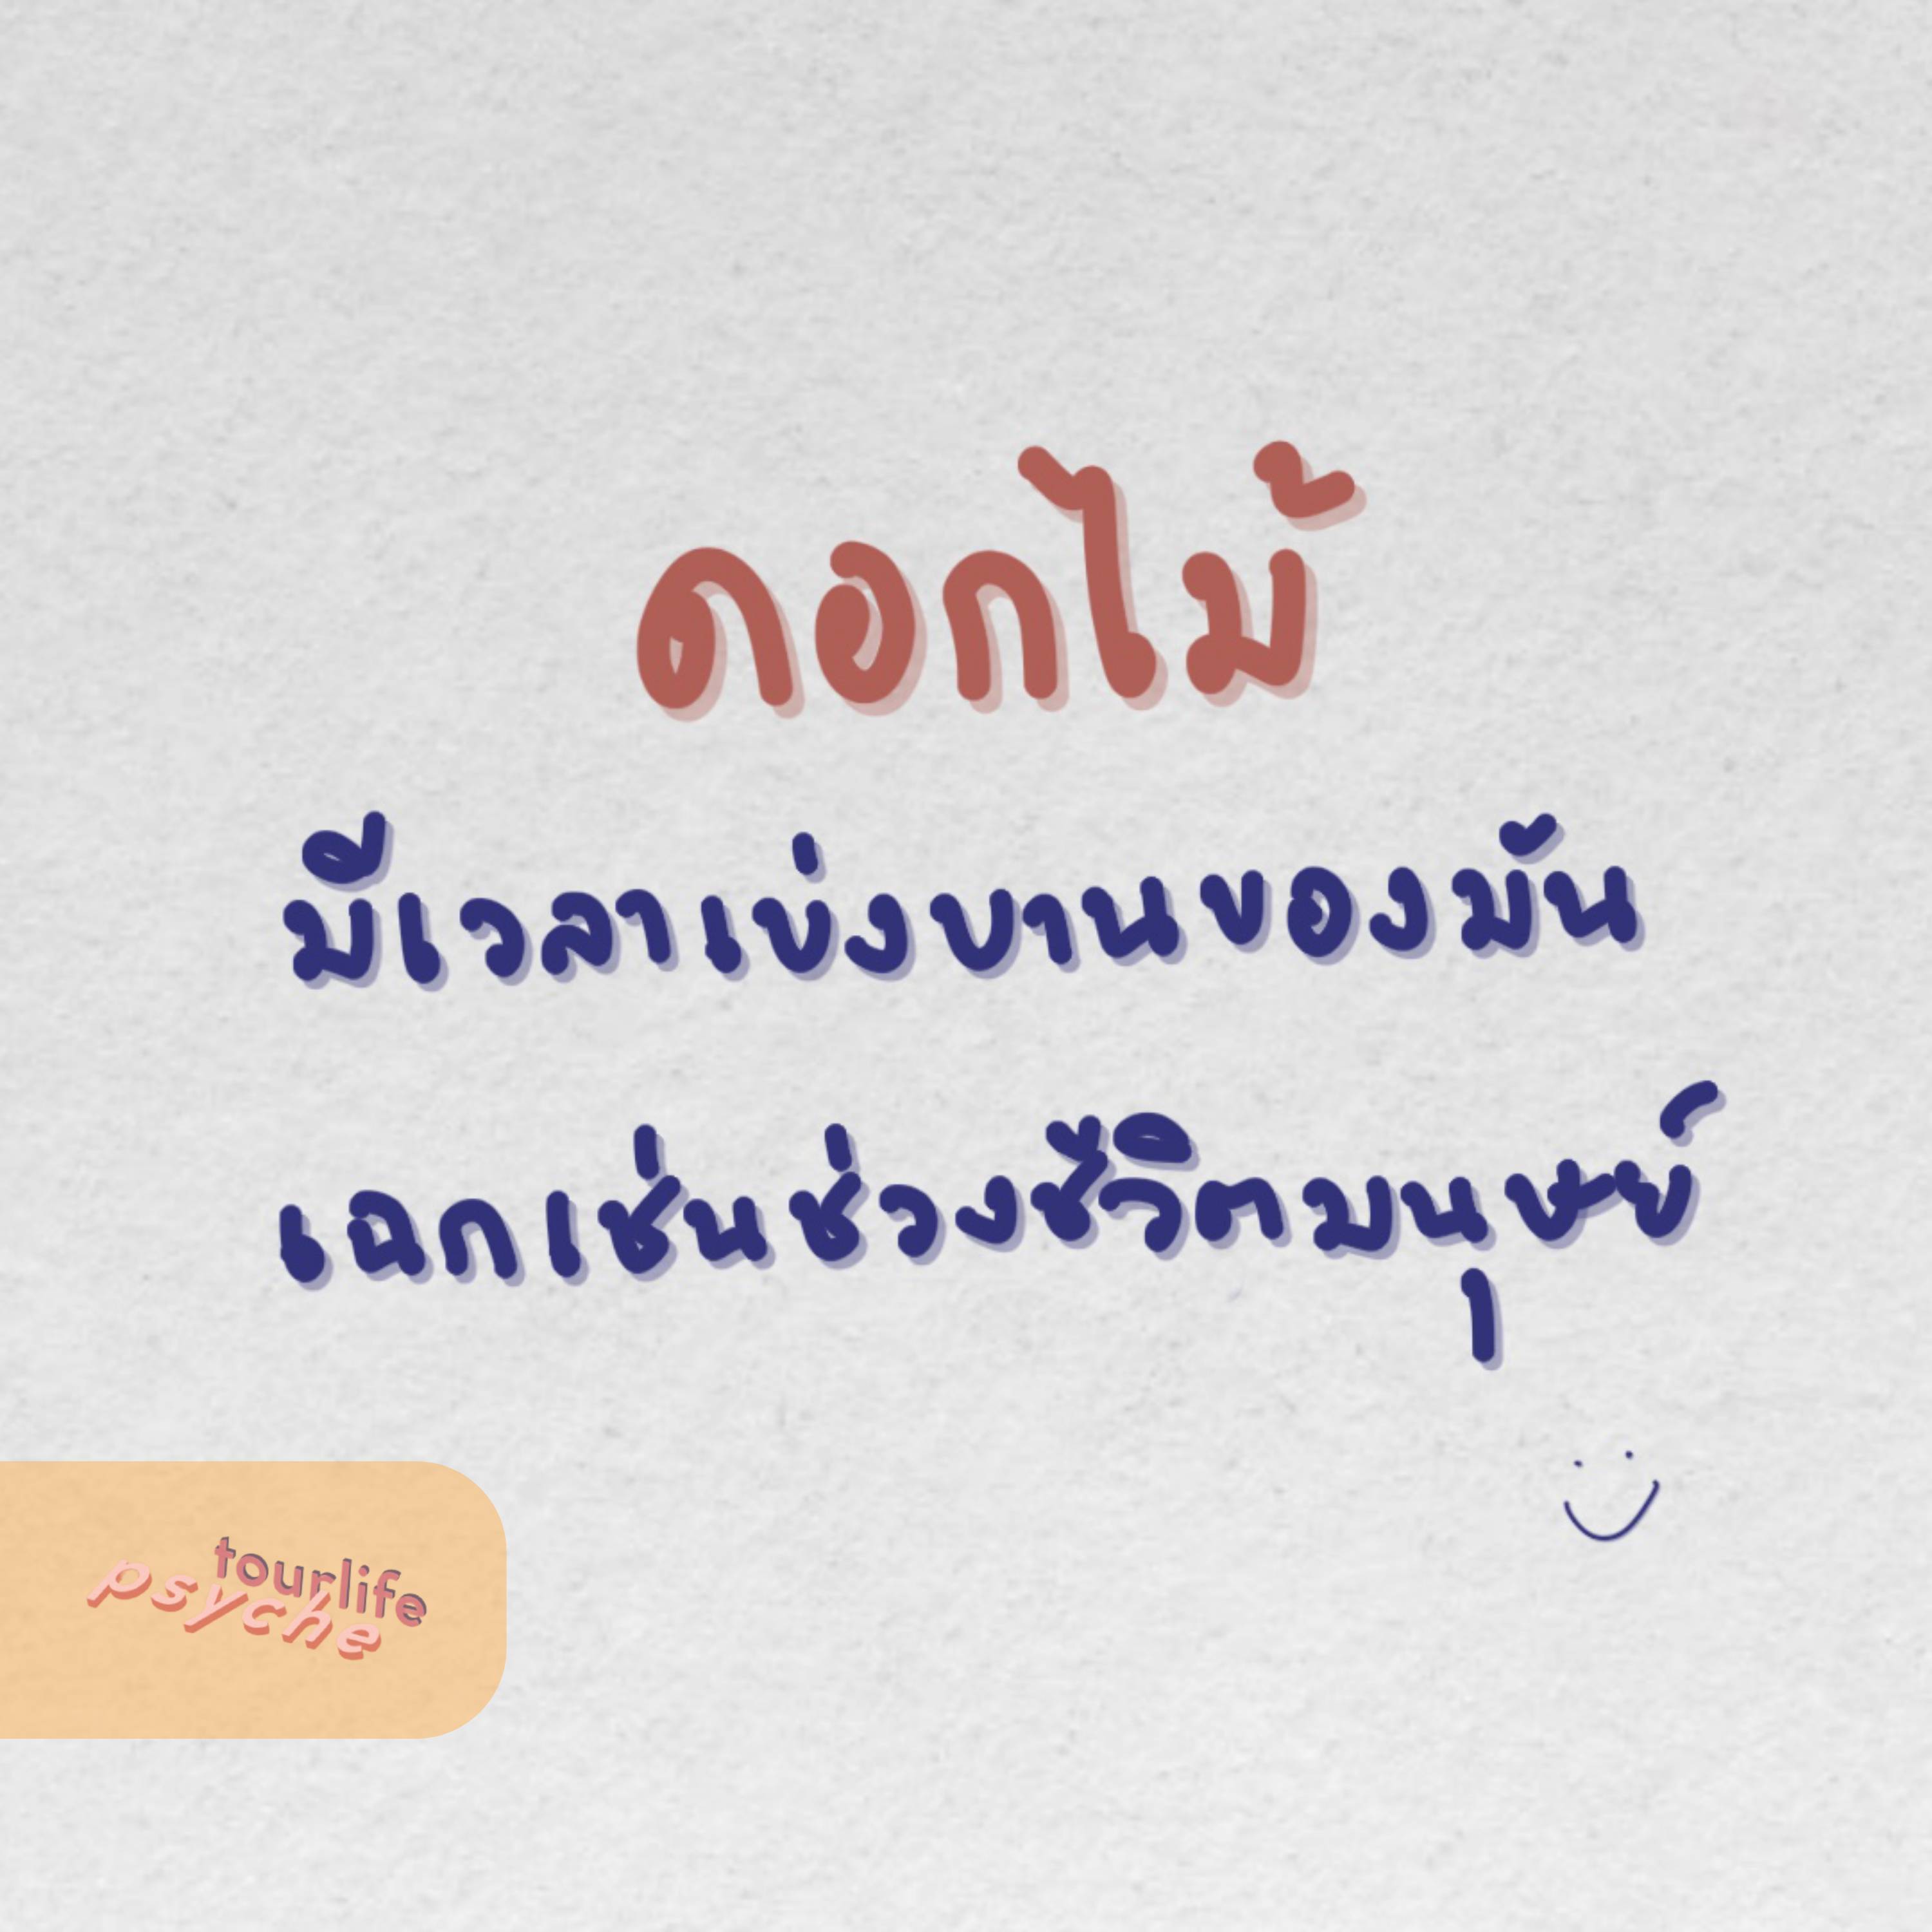 ดอกไม้
มีเวลาเบ่งบานของมัน
เฉกเช่นช่วงชีวิตมนุษย์
tourlife
psyche